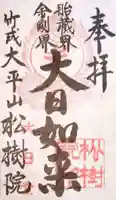 奉拝
胎蔵界
金剛界
大日如来
竹成大平山松樹院
松樹